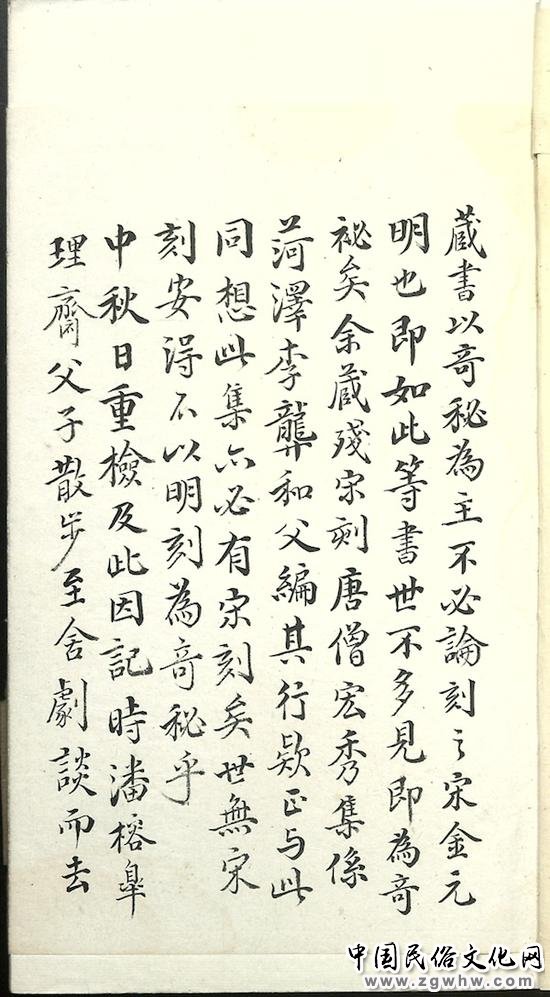 蔵書以竒秘為主不必論刻之宋金元
明也即如此等書世不多見即為竒
祕矣余蔵殘宋刻唐僧宏秀集係
菏澤李龏和父編其行款正与此
同想此集亦必有宋刻矣世無宋
刻安得不以明刻為竒秘乎
中秋日重檢及此因記時潘榕臯
理齋父子散步至舍劇談而去
中国民俗文化网
www.zgwhw.com